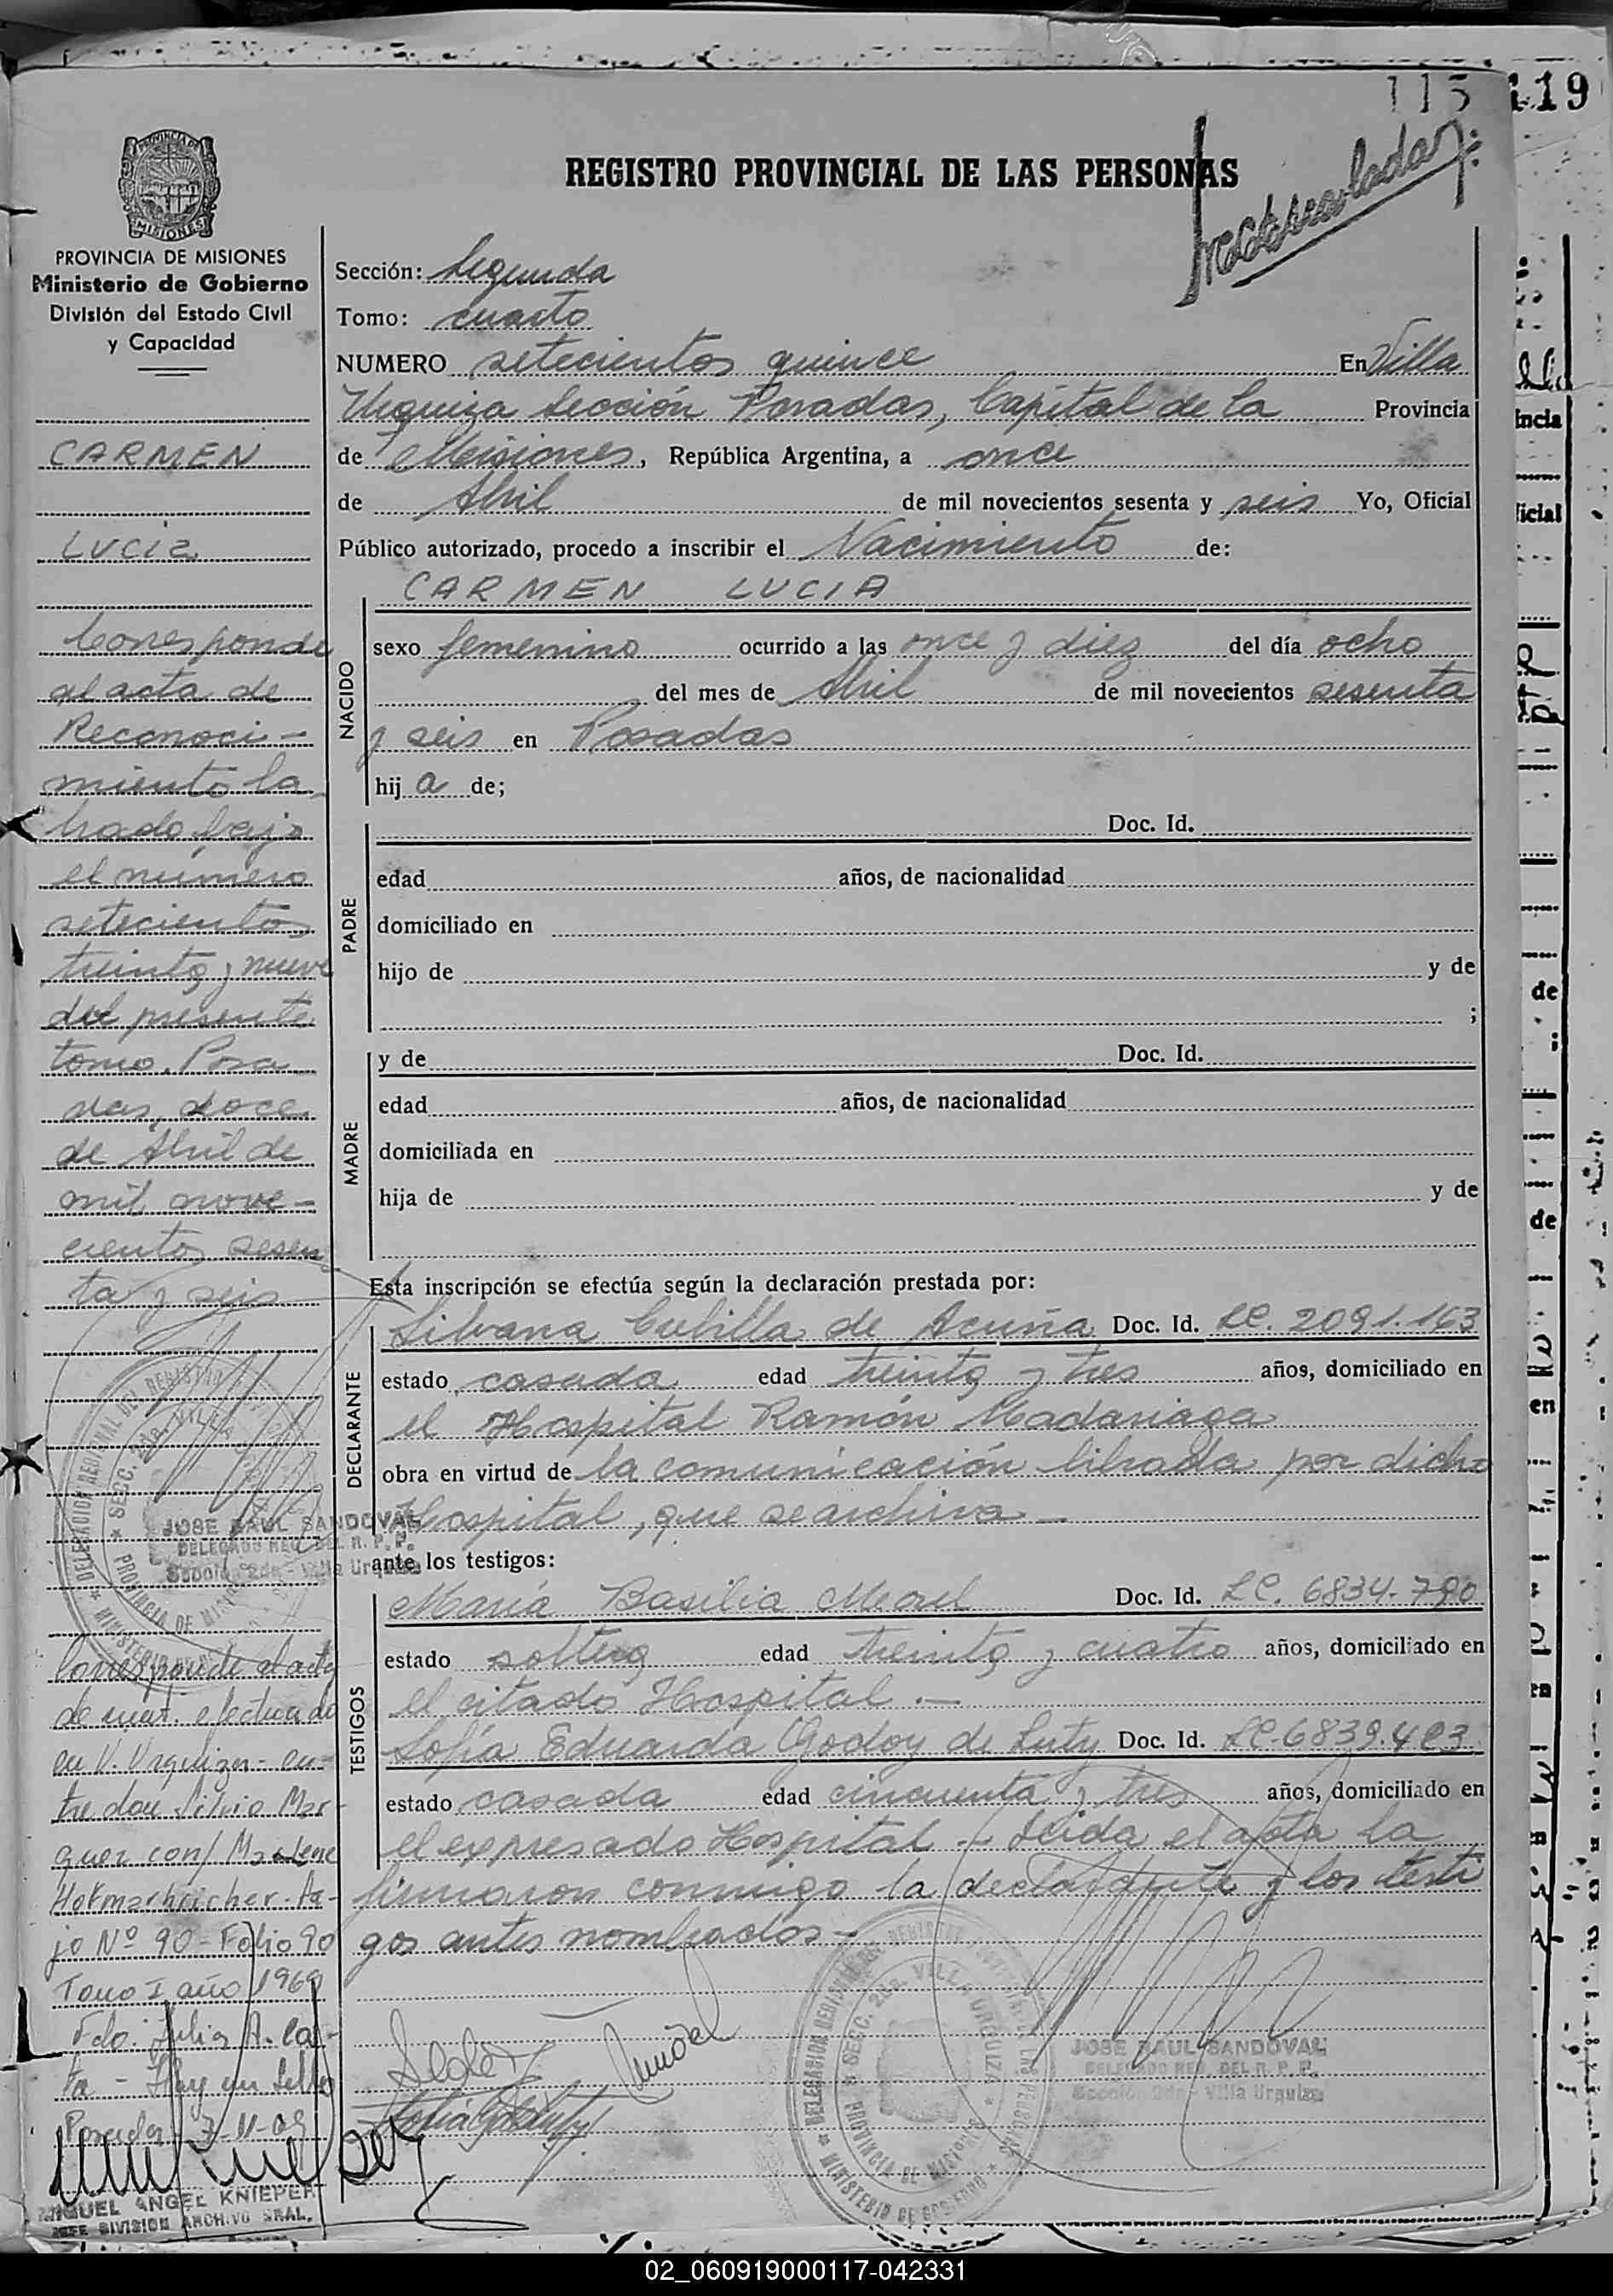 115 119
Inmatriculada
REGISTRO PROVINCIAL DE LAS PERSONAS
PROVINCIA DE MISIONES
Ministerio de Gobierno
División del Estado Civil
y Capacidad
CARMEN
LUCIA
Corresponde
al acta de
Reconoci-
miento la
brado bajo
el número
setecientos
treinta y nueve
del presente
tomo. Posa
das, doce
de Abril de
mil nove-
cientos sesen
ta y seis
JOSE RAUL SANDOVAL
DELEGADO REG. DEL R. P. P.
Sección 2da - Villa Urquiza
Corresponde al acta
de mat. efectuado
en V. Urquiza - en-
tre don Silvio Mar-
quez con/ Marlene
jo Nº 90 - Folio 90
Tomo I año 1969
Fdo: Julia A.
- Hay un sello
Posadas
MIGUEL ANGEL KNIEPER
JEFE DIVISION ARCHIVO GRAL.
Sección: Segunda
Tomo: cuarto
NUMERO setecientos quince En Villa
Urquiza Sección Posadas, Capital de la Provincia
de Misiones, República Argentina, a once
de Abril de mil novecientos sesenta y seis Yo, Oficial
Público autorizado, procedo a inscribir el Nacimiento de:
CARMEN LUCIA
NACIDO
sexo femenino ocurrido a las once y diez del día ocho
del mes de Abril de mil novecientos sesenta
y seis en Posadas
hij a de;
PADRE
Doc. Id.
edad años, de nacionalidad
domiciliado en
hijo de y de
;
MADRE
y de Doc. Id.
edad años, de nacionalidad
domiciliada en
hija de y de
Esta inscripción se efectúa según la declaración prestada por:
DECLARANTE
Silvana Cubilla de Acuña Doc. Id. LC. 2091.163
estado casada edad treinta y tres años, domiciliado en
el Hospital Ramón Madariaga
obra en virtud de la comunicación librada por dicho
Hospital, que se archiva -
ante los testigos:
TESTIGOS
María Basilia Doc. Id. LC. 6834.790
estado soltera edad treinta y cuatro años, domiciliado en
el citado Hospital .-
Sofía Eduarda Godoy de Doc. Id. LC. 6839.423
estado casada edad cincuenta y tres años, domiciliado en
el expresado Hospital.- Leida el acta la
firmaron conmigo la declarante y los testi
gos antes nombrados -
DELEGACION REGIONAL DEL REGISTRO PROVINCIAL DE LAS PERSONAS
SECC. 2da. VILLA URQUIZA
PROVINCIA DE MISIONES
MINISTERIO DE GOBIERNO
JOSE RAUL SANDOVAL
DELEGADO REG. DEL R. P. P.
Sección 2da - Villa Urquiza
02_060919000117-042331